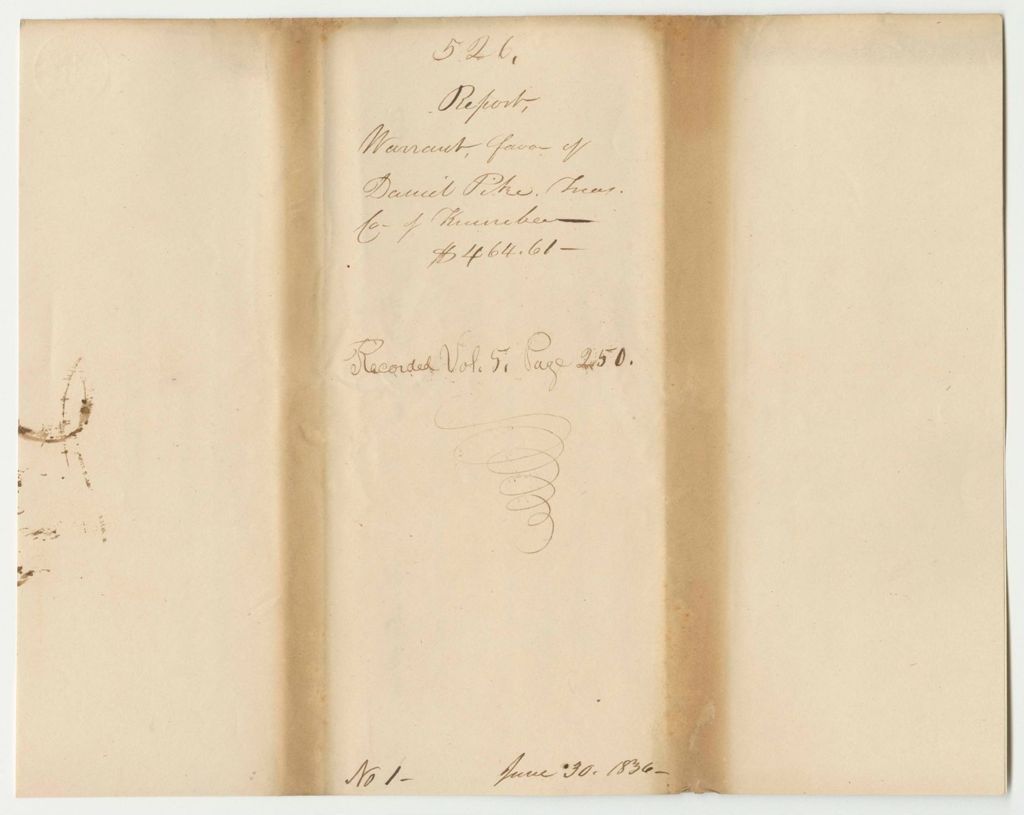 526.
Report,
Warrant, favor of
Daniel Pike. Treas.
Co- of Kennebec
$464.61-
Recorded Vol. 5. Page 250.
No 1- June 30. 1836-